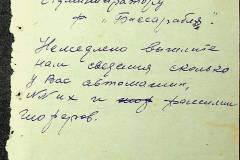 ф "Бессарабия"
Немедлено вышлите
нам сведения сколько
у Вас автомашин,
NN их и фамилии
шоферов.